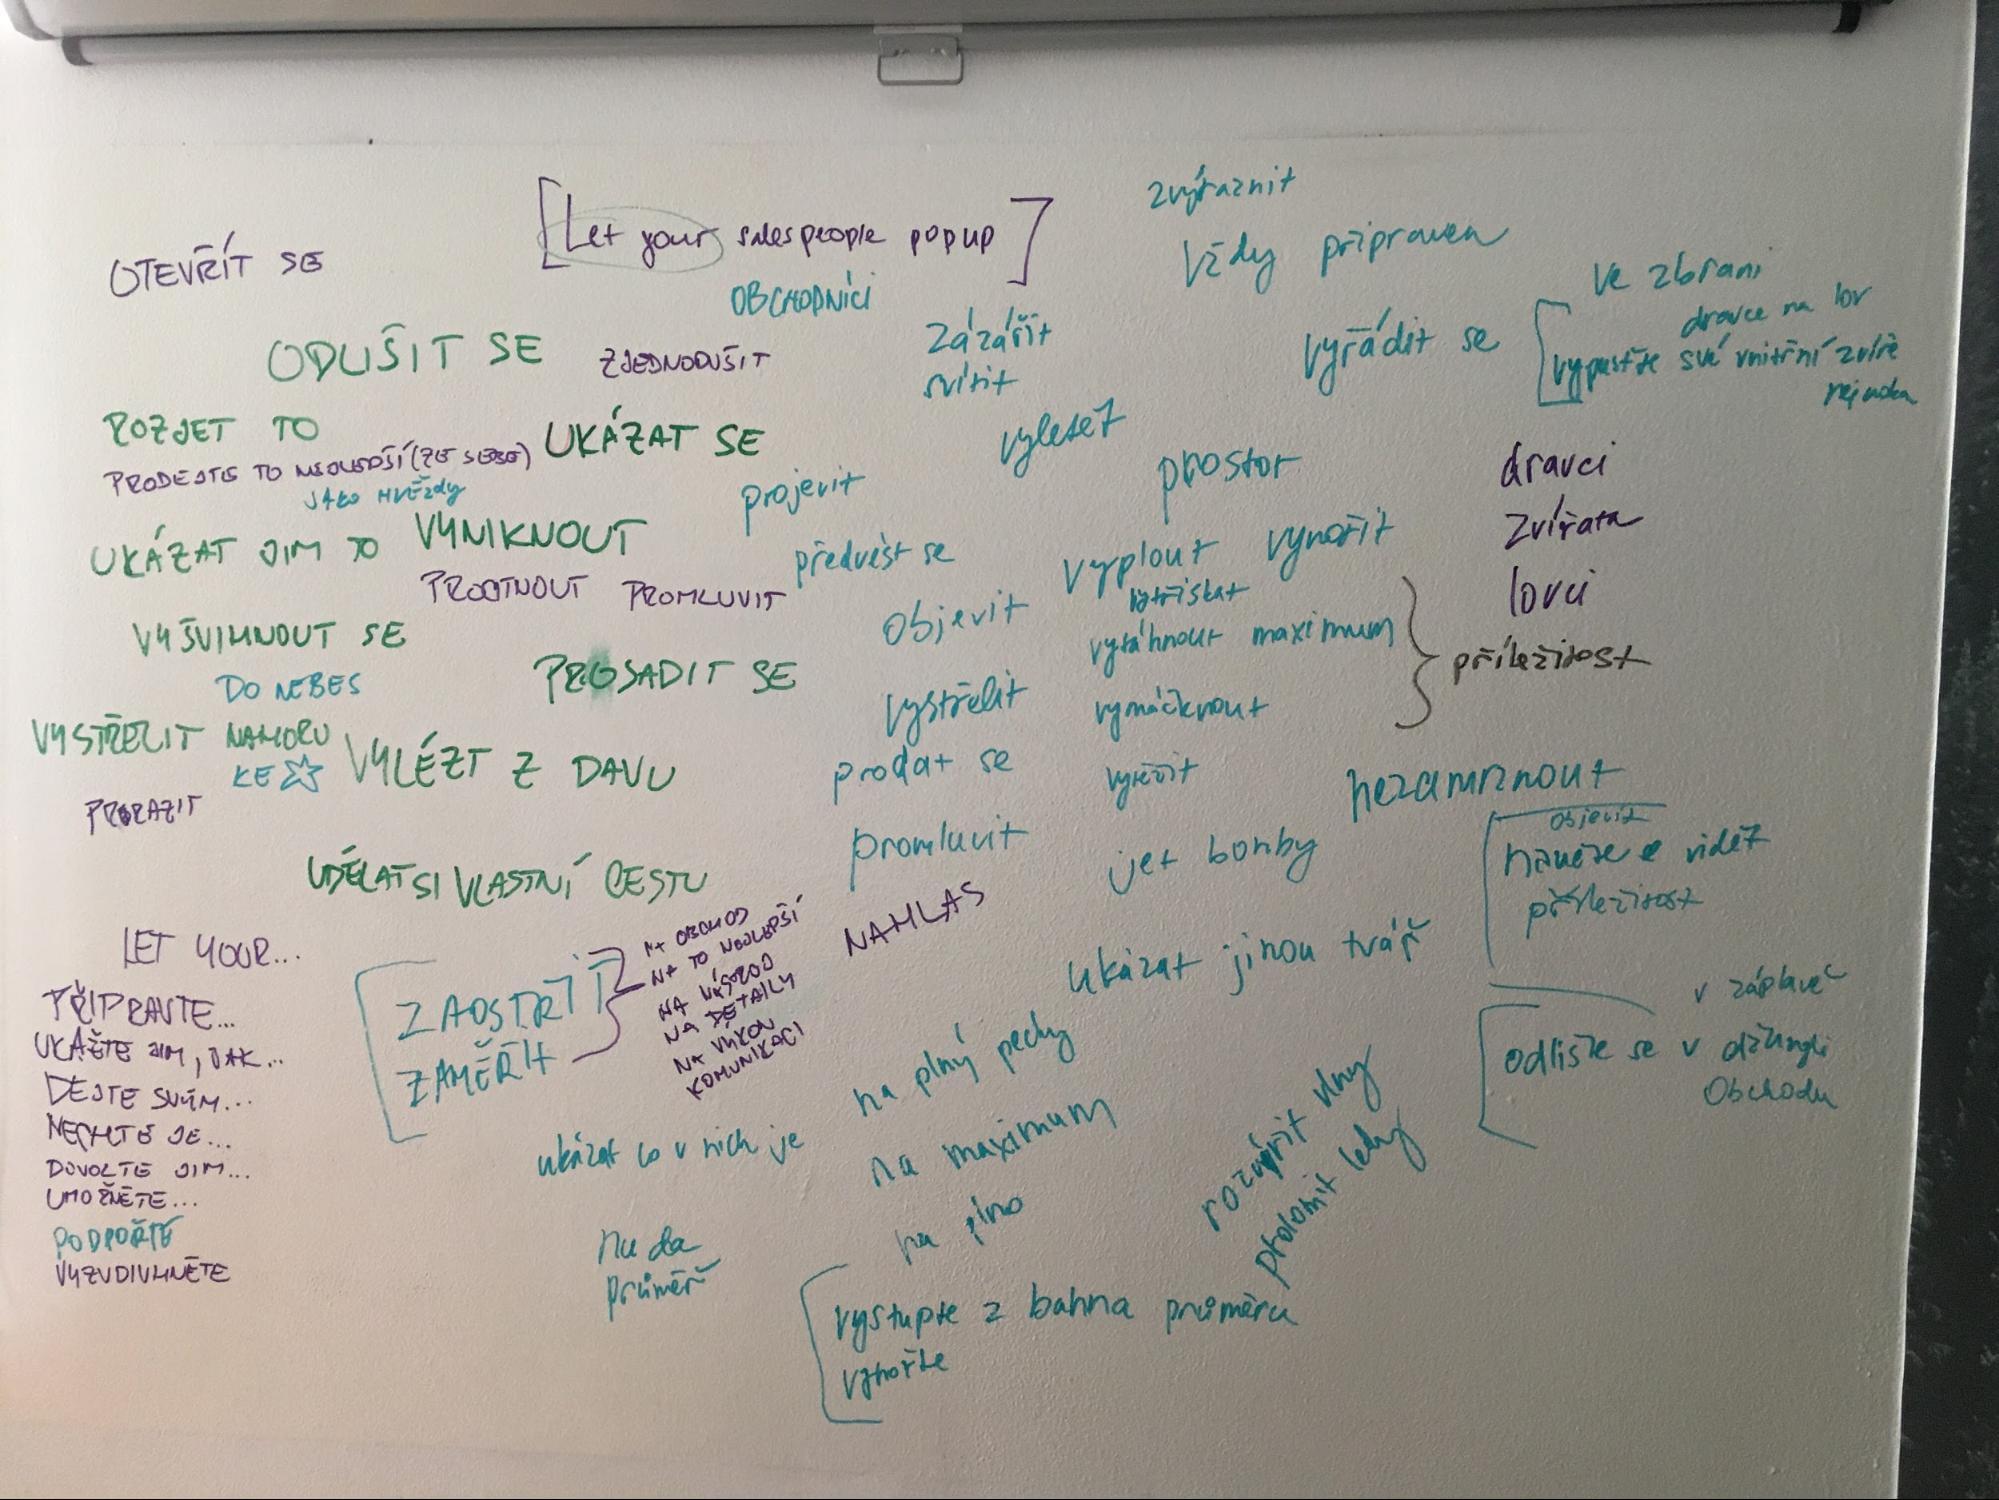 [Let your salespeople popup]
OBCHODNÍCI
OTEVŘÍT SE
ODLIŠIT SE
ZJEDNODUŠIT
ROZJET TO
PRODEJTE TO NEJLEPŠÍ (ZE SEBE)
JAKO HVĚZDY
UKÁZAT SE
UKÁZAT JIM TO
VYNIKNOUT
PROTNOUT PROMLUVIT
VYŠVIHNOUT SE
DO NEBES
PROSADIT SE
VYSTŘELIT NAHORU
KE
VYLÉZT Z DAVU
PRORAZIT
UDĚLAT SI VLASTNÍ CESTU
LET YOUR...
PŘIPRAVTE...
UKAŽTE JIM, JAK...
DEJTE SVÝM...
NECHTE JE...
DOVOLTE JIM...
UMOŽNĚTE...
PODPOŘTE
VYZVDIVIHNĚTE
ZAOSTŘIT
ZAMĚŘIT
NA OBCHOD
NA TO NEJLEPŠÍ
NA
NA DETAILY
NA VÝKON
KOMUNIKACI
NAHLAS
zvýraznit
Vždy připraven
Zázářit
svítit
vyřádit se
ve zbrani
dravce na lov
vypusťte své vnitřní zvíře
vyletět
prostor
projevit
předvést se
vyplout vynořit
vytřískat
objevit
vytáhnout maximum
vystřelit
vymáčknout
prodat se
vytěžit
promluvit
jet bomby
dravci
zvířata
lovci
příležitost
nezamrznout
objevit
vidět
příležitost
ukázat jinou tvář
v záplavě
odlište se v džungli
Obchodu
na plný pecky
na maximum
na plno
ukázat co v nich je
nuda
průměř
rozvířit vlny
prolomit ledy
vystupte z bahna průměru
vynořte